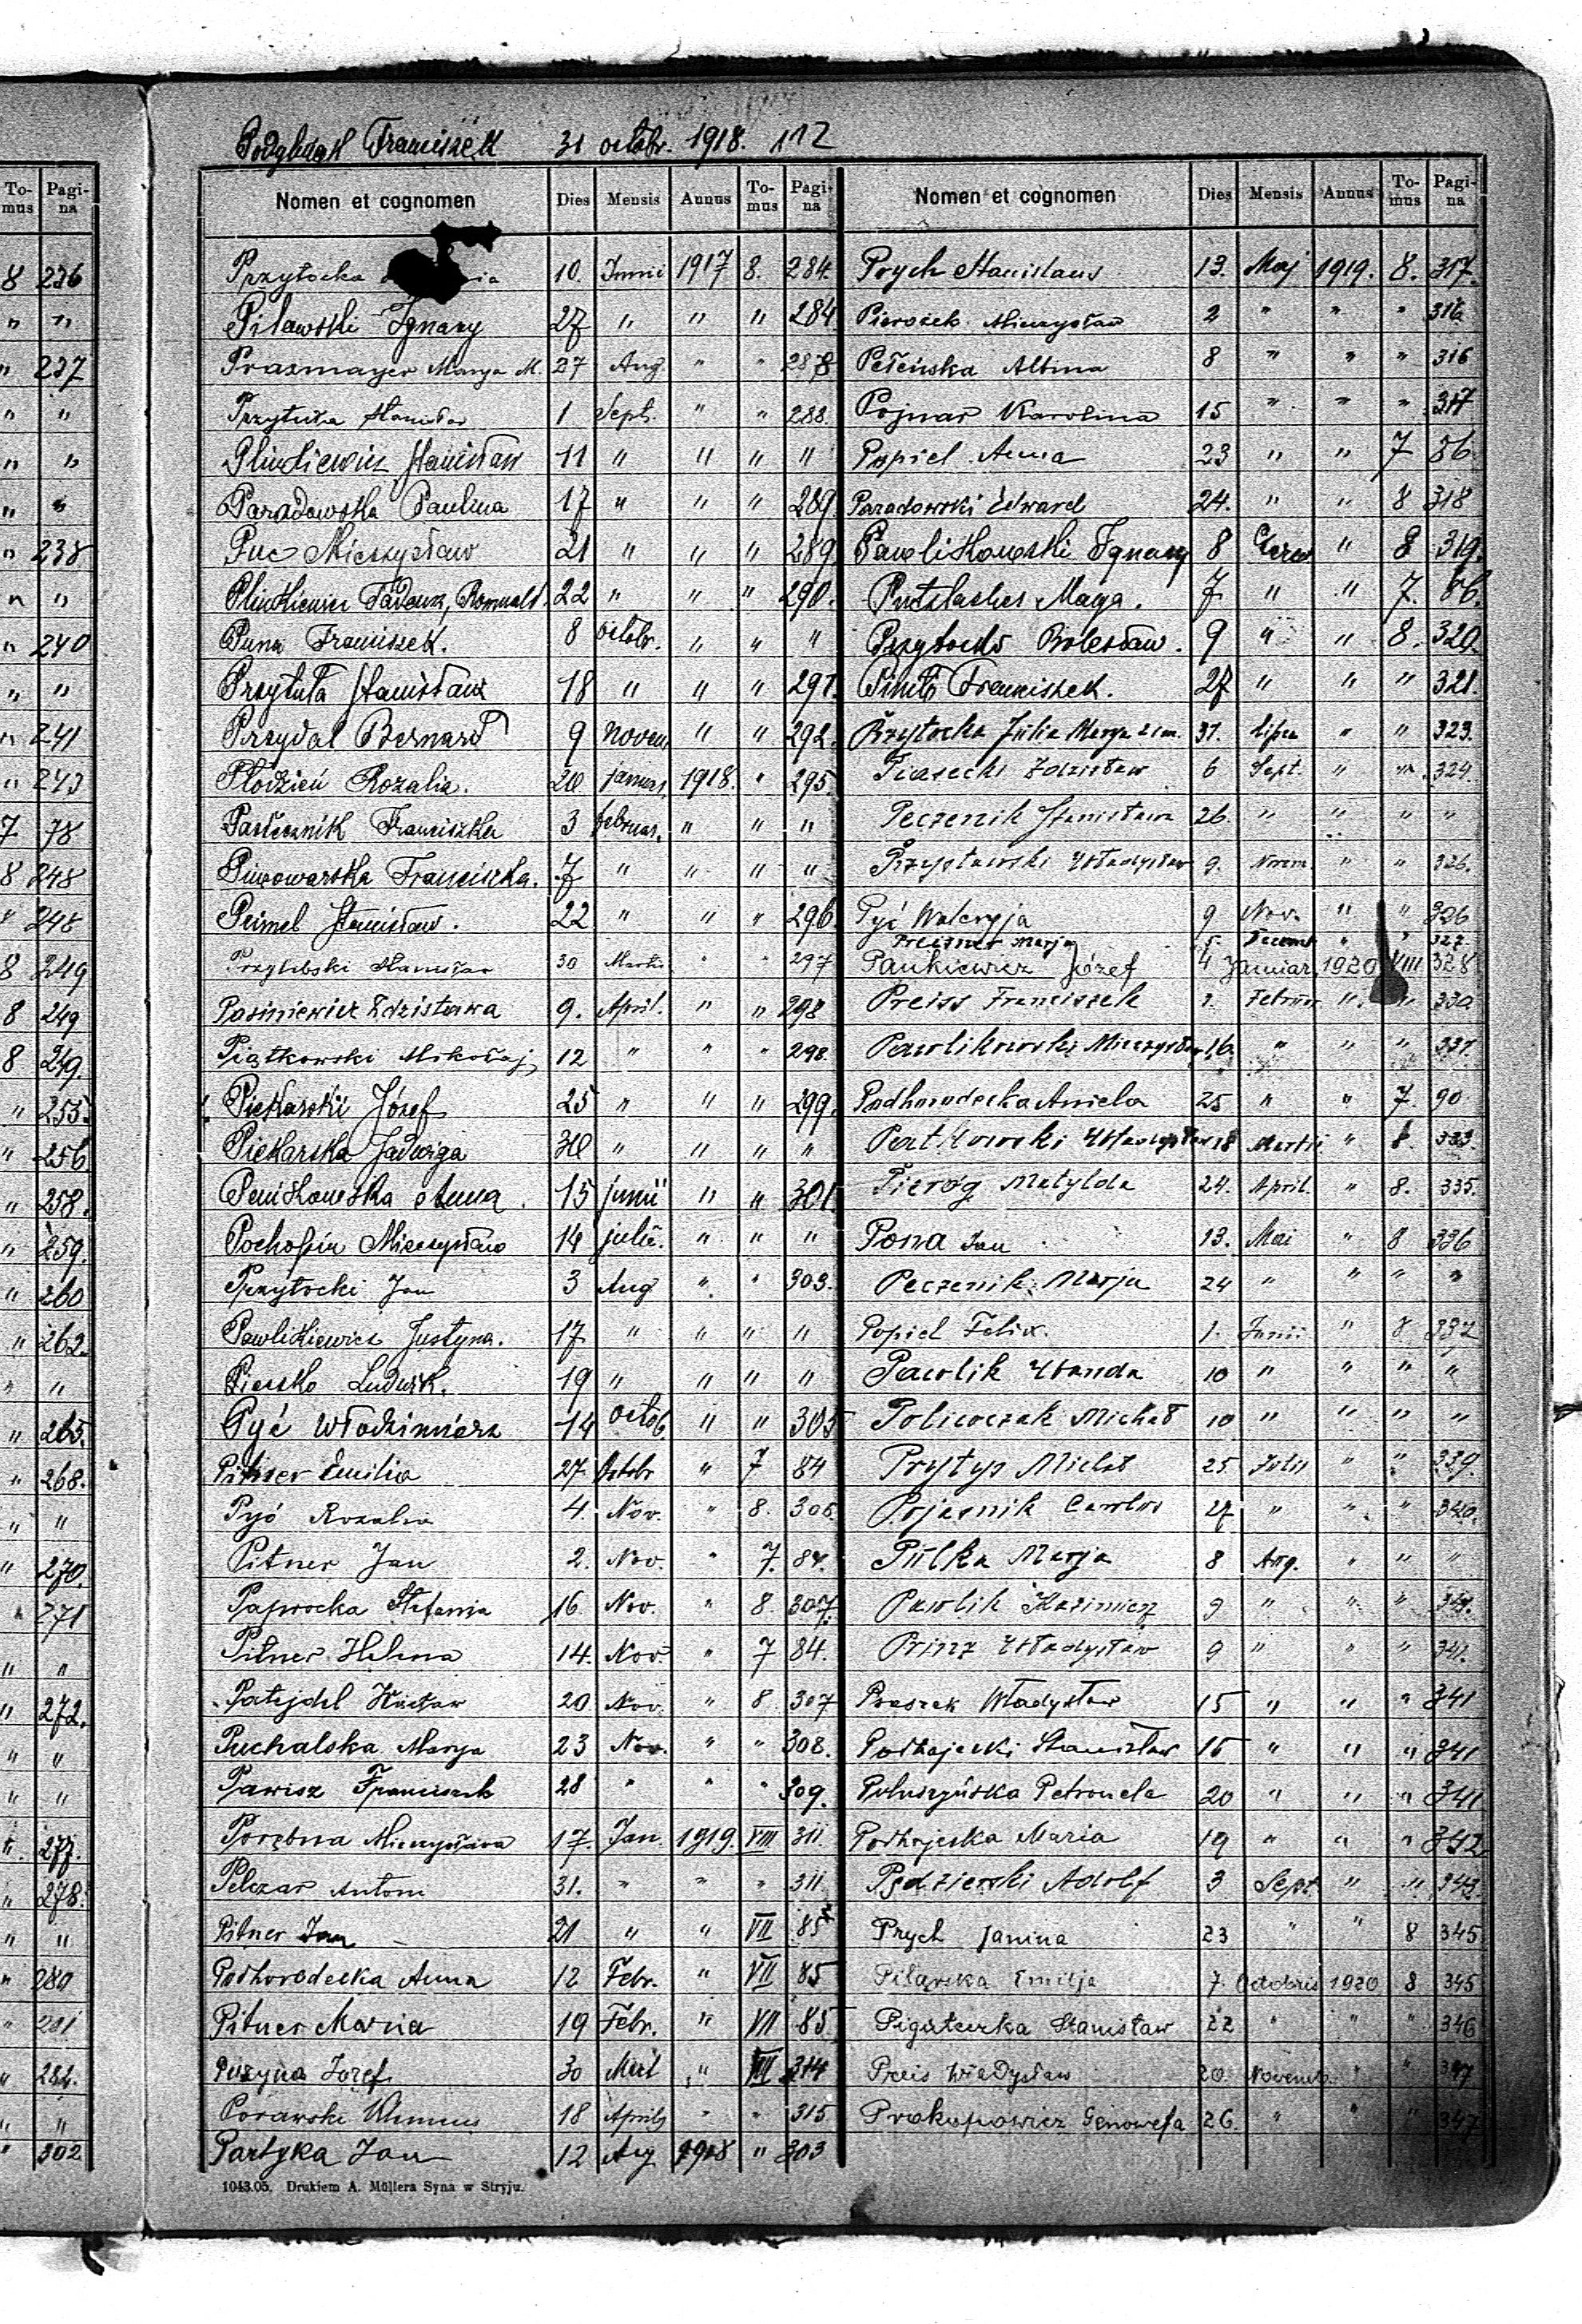 Franciszek 31 octobr. 1918. 112
To-mus Pagi-na
8 236
" "
" 237
" "
" "
" "
" 238
" "
" 240
" "
" 241
" 243
7 78
8 248
" 248
8 249
8 249
8 249.
" 255.
" 256.
" 258.
" 259.
" 260
" 262.
" "
" 265.
" 268.
" "
" 270.
" 271
" "
" 272.
" "
" "
" 277.
" 278.
" "
" 280
" 281
" 282.
" "
" 302
Nomen et cognomen Dies Mensis Annus To-mus Pagi-na
Przytocka 10. Junii 1917 8. 284.
Pilawski Ignacy 27 " " " 284
Praxmayer Marya M. 27 Aug. " " 287
Przytuła Stanisław 1 Sept. " " 288.
Plinkiewicz Stanisław 11 " " " "
Paradowska Paulina 17 " " " 289.
Puc Mieczysław 21 " " " 289.
Plinkiewicz Tadeusz, Romuald. 22 " " " 290.
Puna Franciszek. 8 octobr. " " "
Przytuła Stanisław 18 " " " 291.
Przydał Bernard 9 novem " " 292.
Płodzień Rozalia. 20 januar. 1918. " 295.
Pastecznik Franciszka 3 februar. " " "
Piwowarska Franciszka. 7 " " " "
Peimel Stanisław. 22 " " " 296
Przylibski Stanisław 30 Martii " " 297
Pasiniewicz Zdzisława 9. April. " " 298
Piątkowski Mikołaj 12 " " " 298.
Piekarski Józef 25 " " " 299.
Piekarska Jadwiga 30 " " " "
Penikowska Anna. 15 junii " " 301.
Pochopin Mieczysław 14 julii. " " "
Przytocki Jan 3 Aug " " 303.
Pawlikiewicz Justyna. 17. " " " "
Piesko Ludwik. 19 " " " "
Pyć Włodzimierz 14 octob. " " 305
Pitner Emilia 27. Octobr " 7 84
Pyć Rozalia 4. Nov. " 8. 306.
Pitner Jan 2. Nov. " 7. 84.
Paprocka Stefania 16. Nov. " 8. 307.
Pitner Helena 14. Nov. " 7 84.
20 Nov. " 8. 307
Puchalska Marya 23 Nov. " " 308.
Pawisz Franciszek 28 " " " 309.
Porębna Mieczysława 17. Jan. 1919. VIII 311.
Pelczar Antoni 31. " " " 311
Pitner Jan 21 " " VII 85
Podhorodecka Anna 12 Febr. " VII 85
Pitner Maria 19 Febr. " VII 85
Puzyna Józef 30 " VIII 314
18 Aprilis " " 315
Partyka Jan 12 Aug 1918 " 303
1043.05. Drukiem A. Müllera Syna w Stryju.
Nomen et cognomen Dies Mensis Annus To-mus Pagi-na
Prych Stanislaus 13. Maj 1919. 8. 317.
Pierożek Mieczysław 2 " " " 316
Peleńska Albina 8 " " " 316
Pojnar Karolina 15 " " " 317
Popiel Anna 23 " " 7 86.
Paradowski Edward 24. " " 8 318
Pawlikowski Ignacy 8 Czerw " 8 319.
Putzlacher Marya. 7 " " 7. 86.
Przytocki Bolesław. 9 " " 8. 320.
Franciszek. 27 " " " 321.
Przytocka Julia Marya 31. Lipca " " 323.
Piasecki Zdzisław 6 Sept. " " 324.
Peczenik Stanisława 26. " " " "
Przystawski Władysław 9. Novem. " " 326.
Pyć Waleryja 9 Nov. " " 326
Preisner Marja 5. Decemb " " 327.
Pankiewicz Józef 4 Januar. 1920 VIII 328
Preiss Franciszek 1. Februar " " 330.
Pawlikowski Mieczysław 16. " " " 331.
Podhorodecka Aniela 25 " " 7. 90
Władysław 18 Martii " 8. 333.
Pieróg Matylda 24. April. " 8. 335.
Pona Jan 13. Mai " 8 336
Peczenik Marja 24 " " " "
Popiel Felix. 1. Junii " 8 337
Pawlik Wanda 10 " " " "
Policzak Michał 10 " " " "
Prytys Michał 25. Julii " " 339.
Pojasnik Carolus 27 " " " 340.
Pilka Marja 8 Aug. " " "
Pawlik Kazimierz 9 " " " 341.
Prinz Władysław 9 " " " 341.
Praszek Władysław 15 " " " 341
Podhajecki Stanisław 15 " " " 341
Petronela 20 " " " 341
Podhajecka Maria 19 " " " 342
Adolf 3 Sept. " " 343.
Prych Janina 23 " " 8 345
Pilarska Emilja 7. Octobris 1920 8 345
Stanisław 22 " " " 346
Preis Władysław 20. Novemb. " " 347
Prokopowicz Genowefa 26. " " " 347